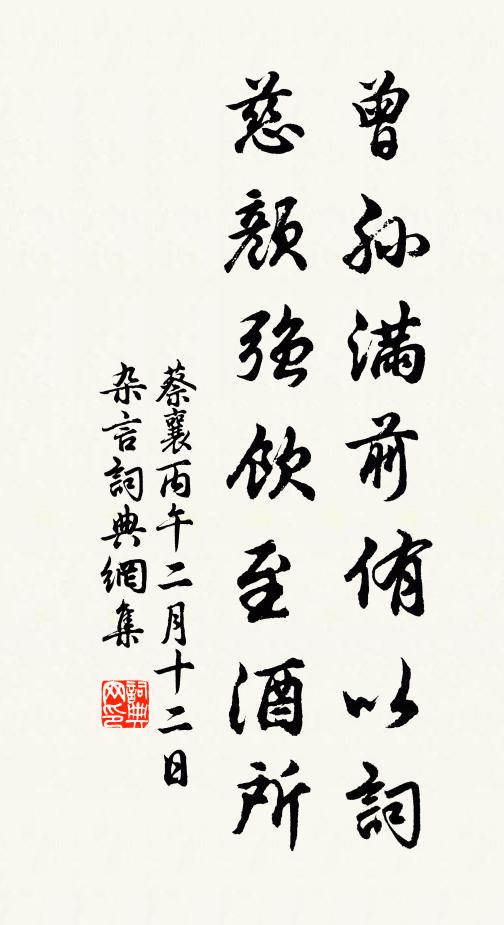 曾孙滿前侑以詞
慈顔强飲至酒所
蔡襄丙午二月十二日
杂言詞典網集
詞典
网印